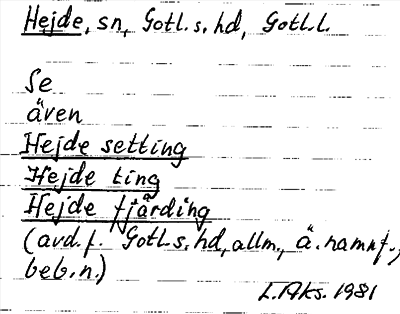 Hejde, sn, Gotl. s. hd, Gotl. l.
Se
även
Hejde setting
Hejde ting
Hejde fjärding
(avd. f. Gotl. s. hd, allm., ä. namnf.,
beb.n.)
L. Aks. 1981